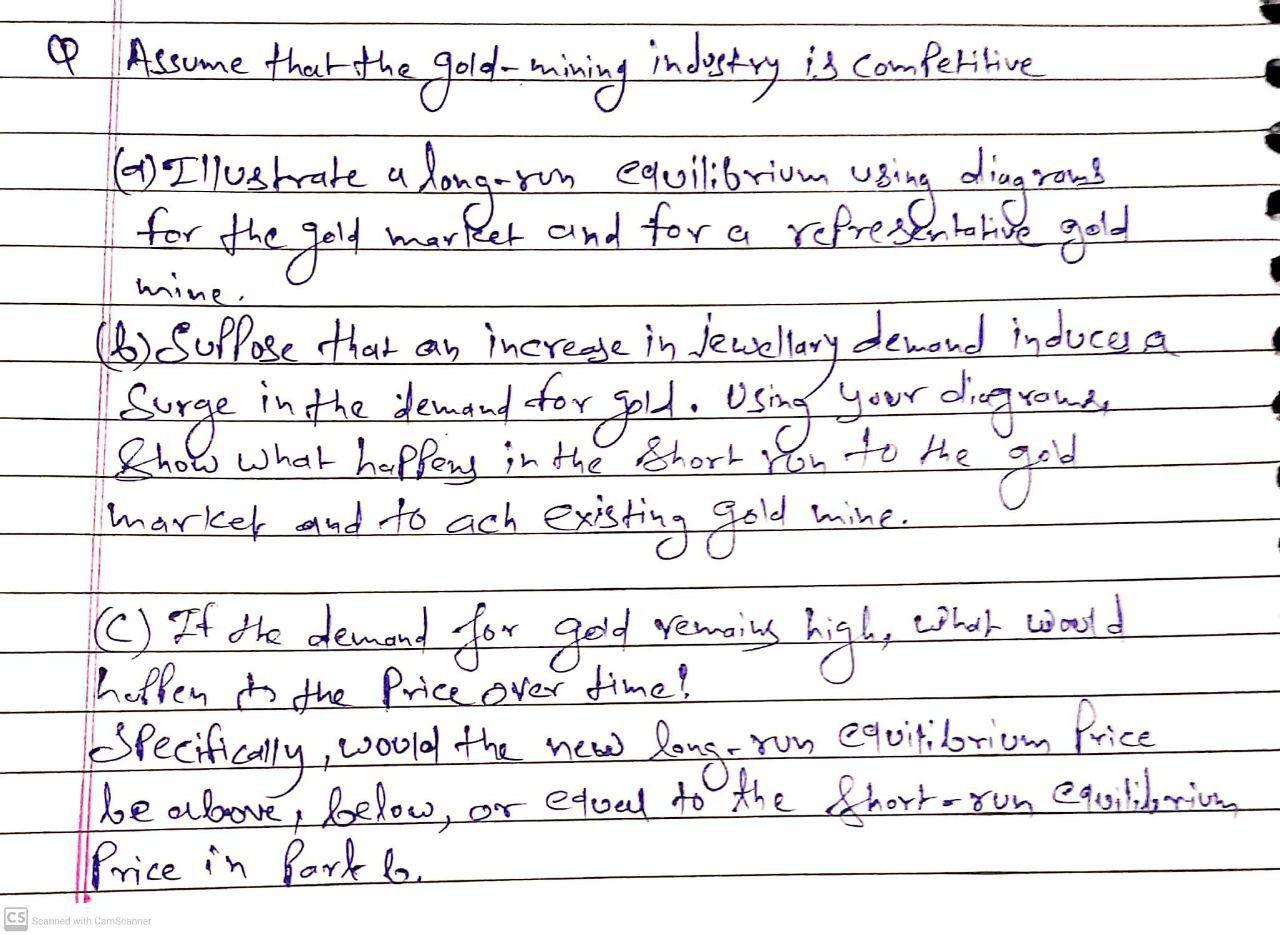 Q Assume that the gold-mining industry is competitive
(a) Illustrate a long-run equilibrium using diagrams
for the gold market and for a representative gold
mine.
(b) Suppose that an increase in Jewellary demand induces a
Surge in the demand for gold. Using your diagrams,
Show what happens in the Short run to the gold
market and to ach existing gold mine.
(C) If the demand for gold remains high, what would
happen to the Price over time?
Specifically, would the new long-run equilibrium Price
be above, below, or equal to the Short-run equilibrium
Price in Part b.
CS Scanned with CamScanner